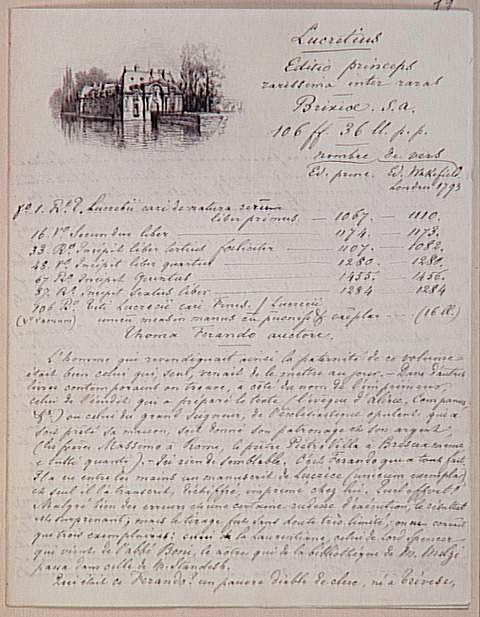 Lucretius
Editio princeps
rarissima inter raras
Brixiæ. S.a.
106 ff. 36 ll. p. p.
nombre de vers
Ed. princ. Ed. Wakefield
London 1793
fo 1. Ro T. Lucretii cari de natura rerum
liber primus. — 1067. — 1110.
16. Vo Secundus liber — 1174. — 1173.
33. Ro Incipit liber tertius foeliciter — 1107. — 1082.
48. Vo Incipit liber quartus — 1280. — 1280.
67 Ro Incipit Quintus — 1455. — 1456.
87. Ro Incipit Sextus liber — 1284 — 1284
106 Ro Titi Lucrecii cari finis. / Lucrecii
unicum meas in manus cum pervenisset exemplar — (16 ll)
Thoma Ferando auctore.
L'homme qui revendiquait ainsi la paternité de ce volume
était bien celui qui, seul, venait de le mettre au jour. — Dans d'autres
livres contemporains on trouve, à côté du nom de l'imprimeur,
celui de l'érudit qui a préparé le texte (l'évêque d'Aleria, Campanus,
&a) ou celui du grand Seigneur, de l'ecclésiastique opulent qui a
soit prêté sa maison, soit donné son patronage et son argent
(les frères Massimo à Rome, le prêtre Pietro Villa à Brescia même
e tutti quanti). — Ici rien de semblable. C'est Ferando qui a tout fait.
Il a eu entre les mains un manuscrit de Lucrèce (unicum exemplar)
et seul il l'a transcrit, déchiffré, imprimé chez lui. Quel effort!
Malgré bien des erreurs et une certaine rudesse d'exécution, le résultat
est surprenant; mais le tirage fut sans doute très limité; on ne connait
que trois exemplaires: celui de la Laurentienne, celui de Lord Spencer
qui vient de l'abbé Boni, le nôtre qui de la bibliothèque de M. Melzi
passa dans celle de M. Standish.
Qui était ce Ferando? un pauvre diable de clerc, né à Trévise,